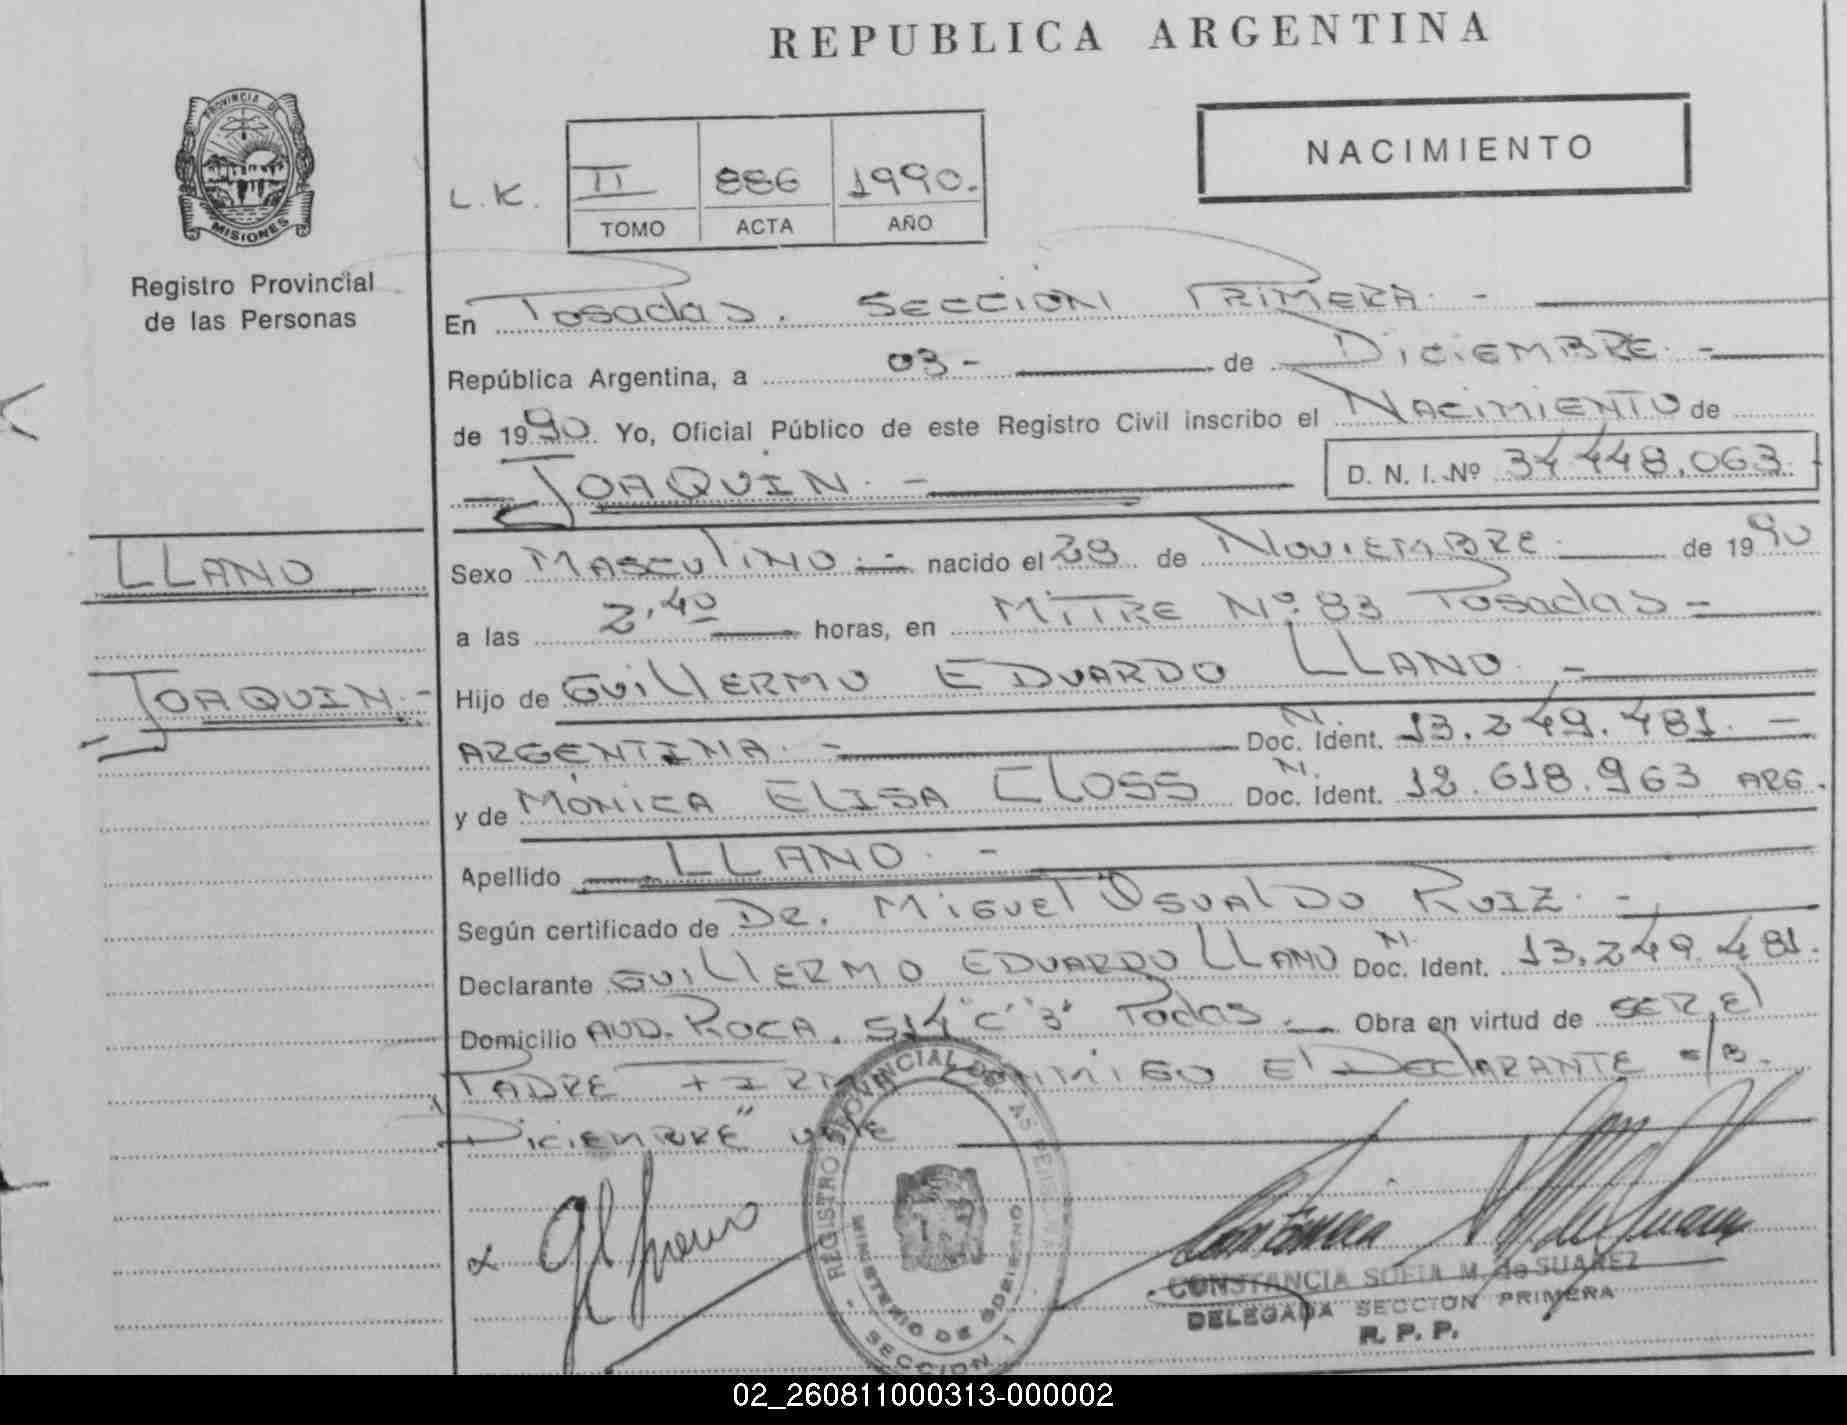 REPUBLICA ARGENTINA
PROVINCIA DE
MISIONES
Registro Provincial
de las Personas
L.K.
II 886 1990.
TOMO ACTA AÑO
NACIMIENTO
En Posadas. SECCION PRIMERA. -
República Argentina, a 03 - de DICIEMBRE. -
de 1990 Yo, Oficial Público de este Registro Civil inscribo el NACIMIENTO de
JOAQUIN. - D. N. I. Nº 34.448.063.
LLANO
JOAQUIN. -
Sexo MASCULINO - nacido el 28 de NOVIEMBRE. de 1990
a las 2,40 horas, en MITRE Nº 83 Posadas -
Hijo de GUILLERMO EDUARDO LLANO. -
ARGENTINA. - N. Doc. Ident. 13.249.481. -
y de MÓNICA ELISA CLOSS N. Doc. Ident. 12.618.963 ARG.
Apellido LLANO. -
Según certificado de DR. MIGUEL OSVALDO RUIZ. -
Declarante GUILLERMO EDUARDO LLANO N. Doc. Ident. 13.249.481.
Domicilio AVD. ROCA. 514 "C" "3" Podas. - Obra en virtud de SER El
PADRE FIRMA CONMIGO El DEClARANTE s/B.
"DICIEMBRE" vale
REGISTRO PROVINCIAL DE LAS PERSONAS
MINISTERIO DE GOBIERNO
SECCION 1
CONSTANCIA SOFIA M. de SUAREZ
DELEGADA SECCION PRIMERA
R. P. P.
02_260811000313-000002